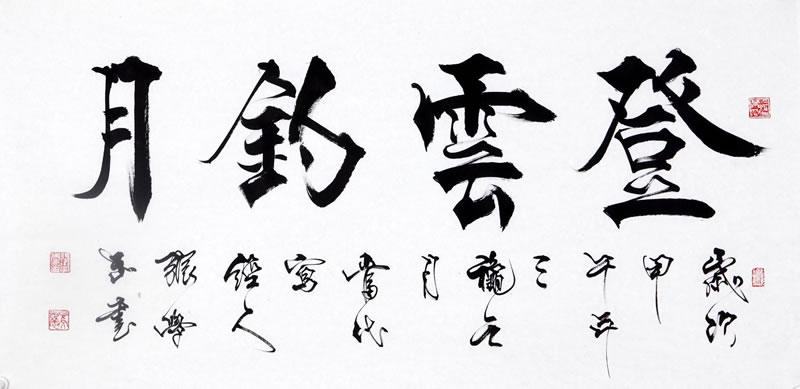 登雲釣月
歲次
甲
午年
三
月
當代
寫
經人
張學
書